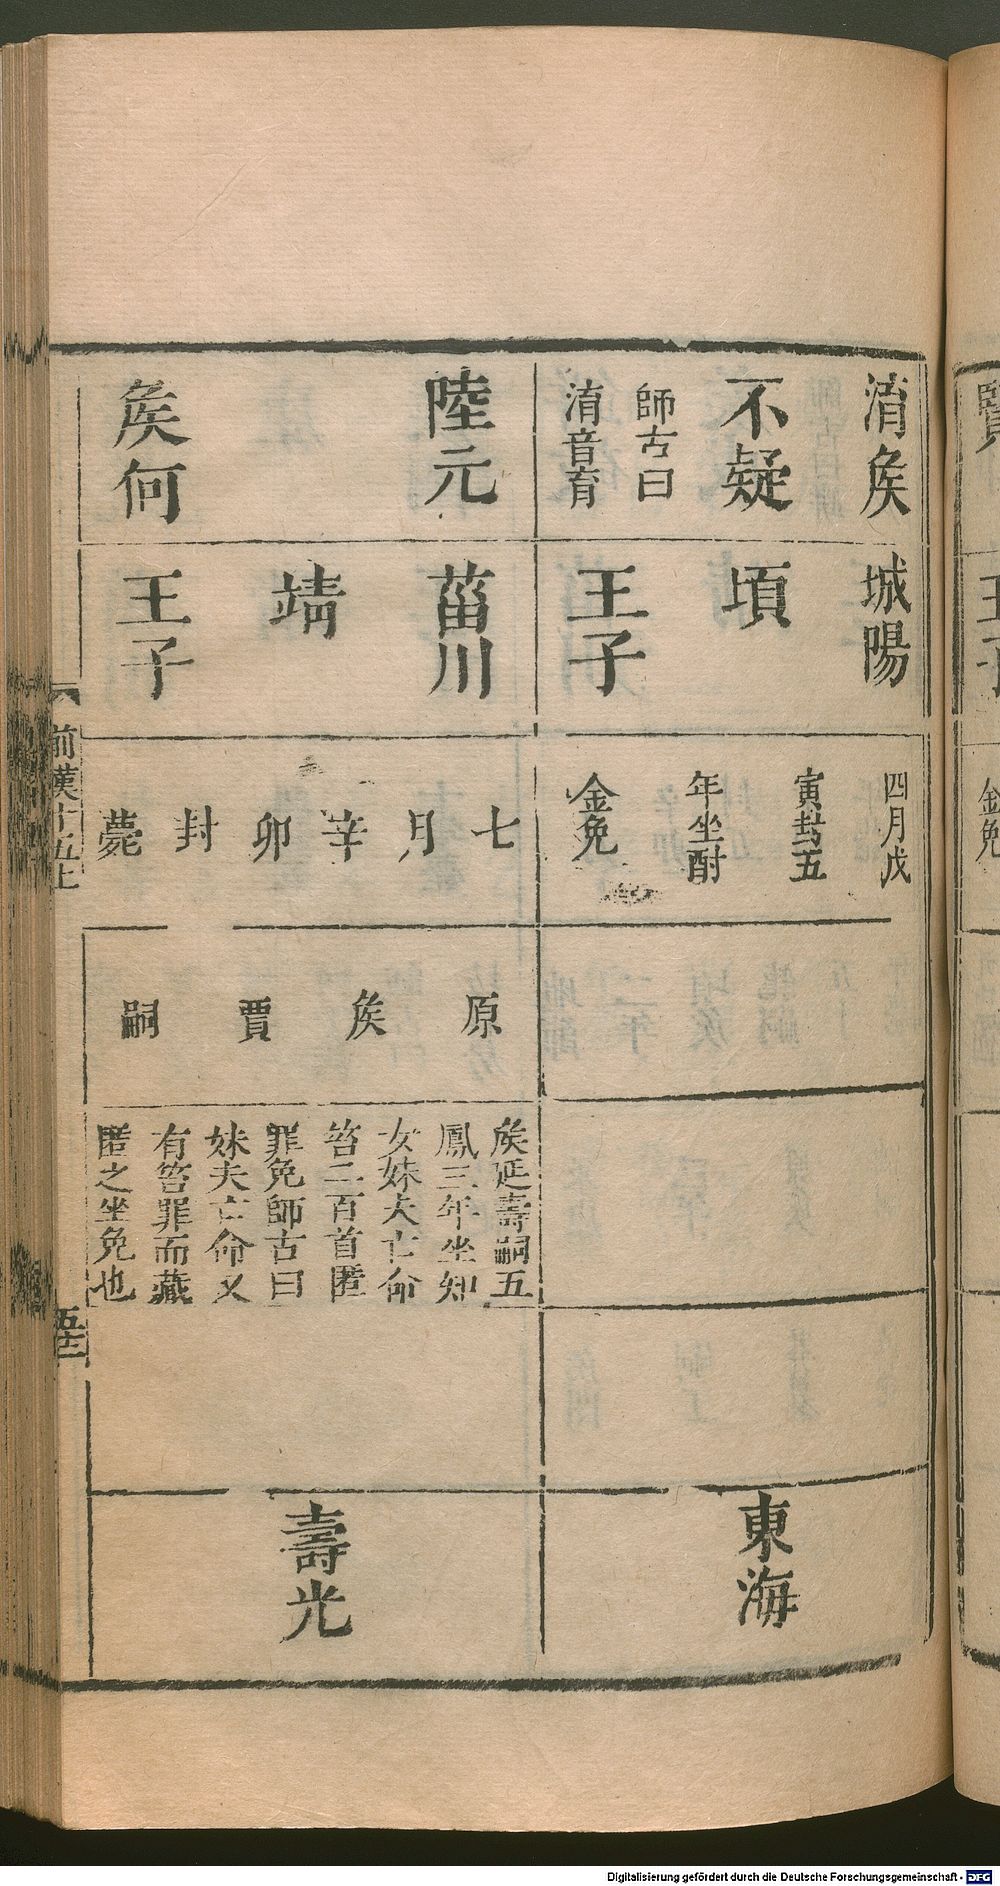 淯矦
不疑
師古曰
淯音育
城陽
頃
王子
四月戊
寅封五
年坐酎
金免
東海
陸元
矦何
菑川
靖
王子
七
月
辛
卯
封
薨
原
矦
賈
嗣
矦延壽嗣五
鳳三年坐知
女妹夫亡命
笞二百首匿
罪免師古曰
妹夫亡命又
有笞罪而藏
匿之坐免也
壽光
前漢十五上
五十二
王子
金免
Digitalisierung gefördert durch die Deutsche Forschungsgemeinschaft - DFG